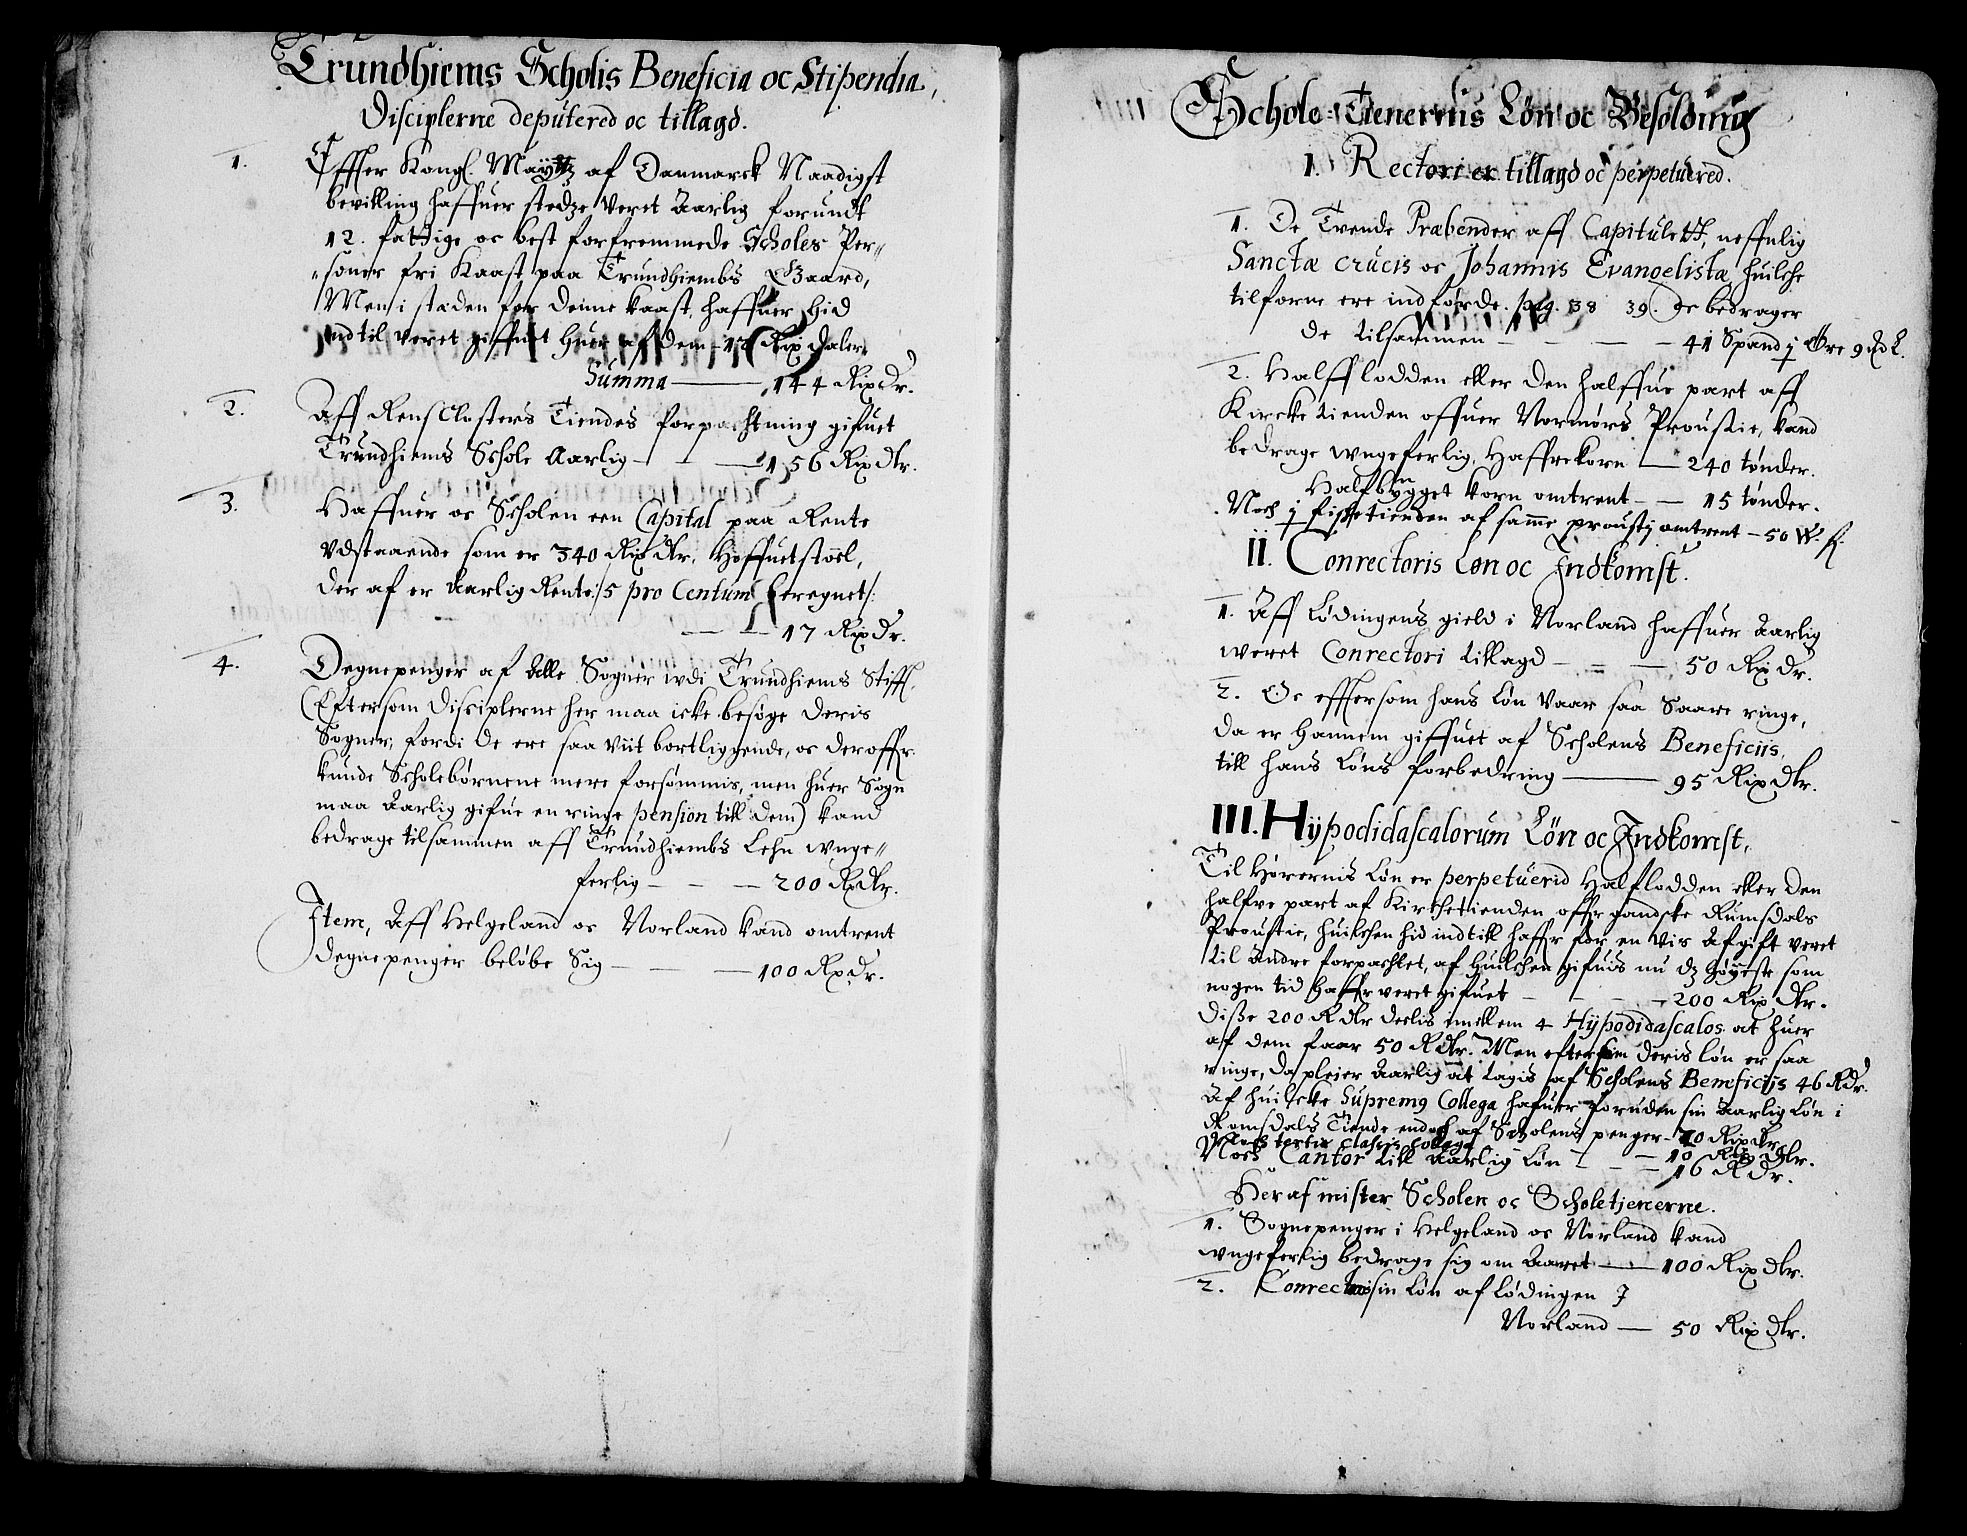 Trundhiems Scholis Beneficia oc Stipendia,
Disciplerne deputered oc tillagd.
1. Effter Kongl. Maytz af Danmarck Naadigst
bevilling haffuer stedze veret Aarlig forundt
12. fattige oc best forfremmede Scholes Per=
=soner fri Kaast paa Trundhiembs Gaard,
Men i stæden for denne kaast, haffuer hid
indtil veret giffuit huer af dem - 12 Rix daler.
Summa — 144 Rix Dr.
2. Aff Rens Closters Tiendes forpachtning gifuet
Trundhiems Schole Aarlig — — 156 Rix dlr.
3. Haffuer oc Scholen een Capital paa Rente
Udstaaende som er 340 Rix dlr. Hoffuetstoel,
der af er Aarlig Rente /: 5 pro Centum beregnet /:
— — 17 Rix Dr.
4. Degnepenger af Alle Sogner udi Trundhiems Stifft.
(Eftersom Disciplerne her maa icke besøge deris
Sogner, fordi de ere saa viit bortliggende, oc deroffr.
kunde Scholebørnene mere forsømmis, men huer Sogn
maa Aarlig gifue en ringe pension till dem) kand
bedrage tilsammen aff Trundhiembs Lehn unge=
ferlig — — — 200 Rdlr.
Item, Aff Helgeland oc Norland kand omtrent
degnepenger beløbe Sig — — 100 Rx Dr.
Schole-Tienernis Løn oc Besolding
I. Rectori er tillagd oc perpetuered.
1. De Tvende Præbender aff Capitulett, neffnlig
Sanctæ crucis oc Johannis Evangelistæ huilche
tilforne ere indførde. pag. 38 39. De bedrager
de tilsammen — — — 41 Spand j Øre 9 Md L.
2. Halfflodden eller den halffue part aff
Kircketienden offuer Normørs Proustie, kand
bedrage ungeferlig, Haffrekorn — 240 tønder.
Halfbygget korn omtrent — — 15 tønder.
Noch j fisketienden af samme prousti omtrent — 50 W. f.
II. Conrectoris Løn oc Indkomst.
1. Aff Lødingens gield i Norland haffuer Aarlig
weret Conrectori tillagd — — — 50 Rix Dr.
2. Oc efftersom hans Løn vaar saa Saare ringe,
da er Hannem giffuet af Scholens Beneficiis
till hans Løns forbedring — 95 Rix dlr.
III. Hypodidascalorum Løn oc Indkomst.
Til Hørernis Løn er perpetuerid Halflodden eller den
halfve part af Kirchetienden offr gandske Rumsdals
Proustie, huilchen hid indtill haffr for en vis Afgift veret
til Andre forpachtet, af huilchen gifuis nu dz høyeste som
nogen tid haffr veret gifuet — — — 200 Rix dlr.
Disse 200 Rdlr deelis imellem 4 Hypodidascalos at huer
af dem faar 50 Rdlr. Men eftersom deris løn er saa
ringe, da pleier Aarlig at tagis af Scholens Beneficiis 46 RDr.
Af huilcke Supremus Collega hafuer foruden sin Aarlig Løn i
Romsdals Tiende endoch af Scholens penger — 20 Rix dr.
Noch tertiæ classis collega — 10 Rix dlr.
Noch Cantor till Aarlig Løn — — 16 RDr.
Her af mister Scholen oc Scholetjenerne.
1. Sognepenger i Helgeland oc Norland kand
ungeferlig bedrage sig om Aaret — 100 Rix dlr.
2. Conrectors sin Løn af Lødingen I
Norland — 50 Rix dlr.